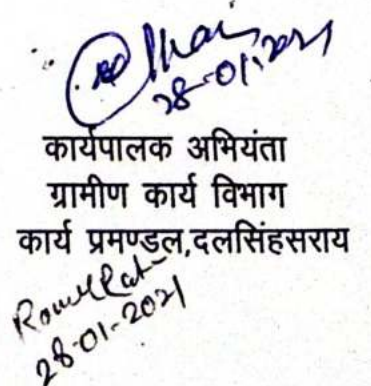 28-01-2021
कार्यपालक अभियंता
ग्रामीण कार्य विभाग
कार्य प्रमण्डल,दलसिंहसराय
28-01-2021